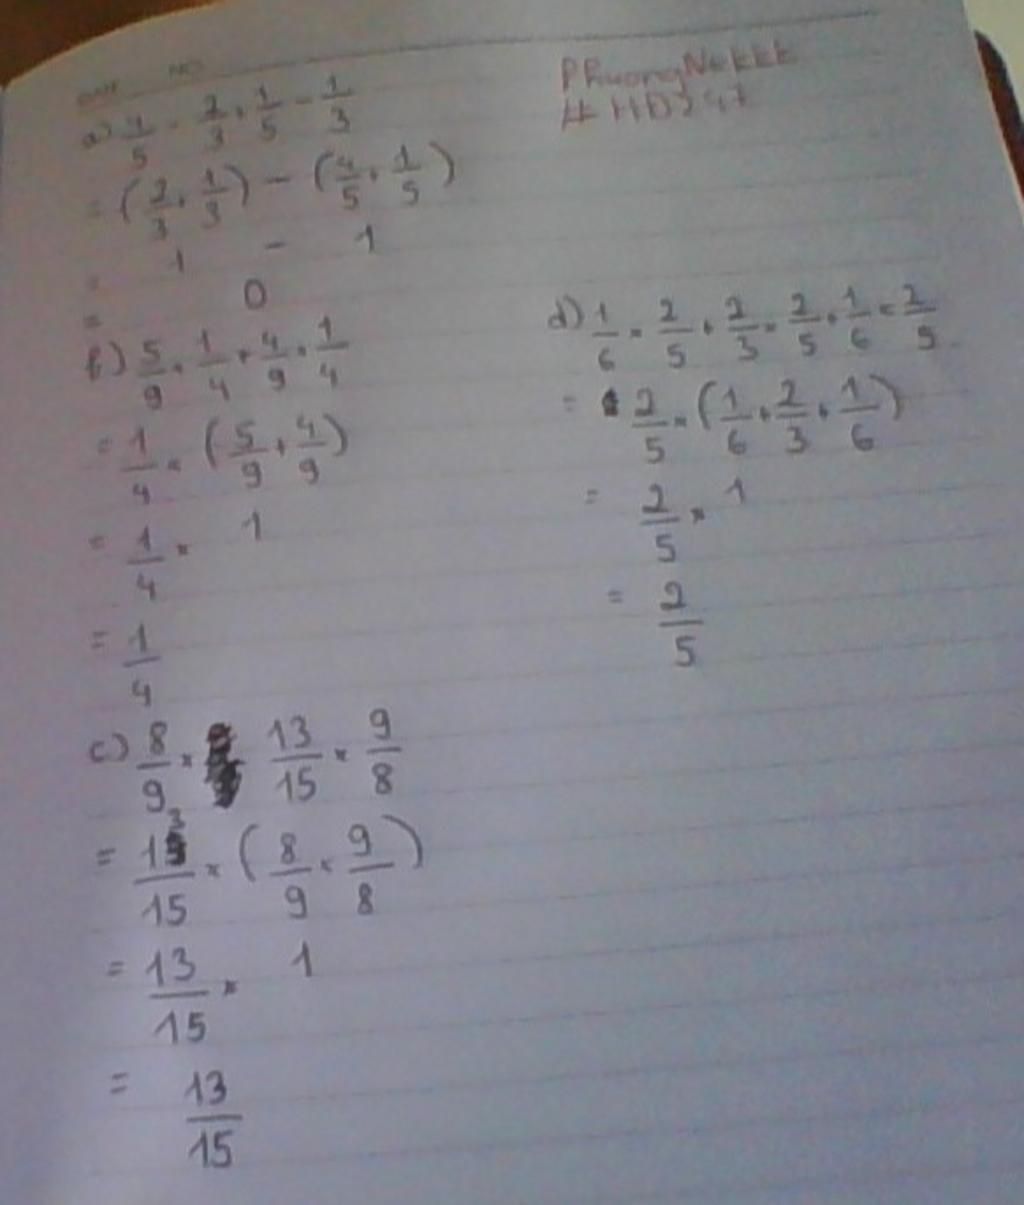 a) 4/5 - 2/3 + 1/5 - 1/3
= (2/3 + 1/3) - (4/5 + 1/5)
= 1 - 1
= 0
b) 5/9 × 1/4 + 4/9 × 1/4
= 1/4 × (5/9 + 4/9)
= 1/4 × 1
= 1/4
c) 8/9 × 13/15 × 9/8
= 13/15 × (8/9 × 9/8)
= 13/15 × 1
= 13/15
d) 1/6 × 2/5 + 2/3 × 2/5 + 1/6 × 2/5
= 2/5 × (1/6 + 2/3 + 1/6)
= 2/5 × 1
= 2/5